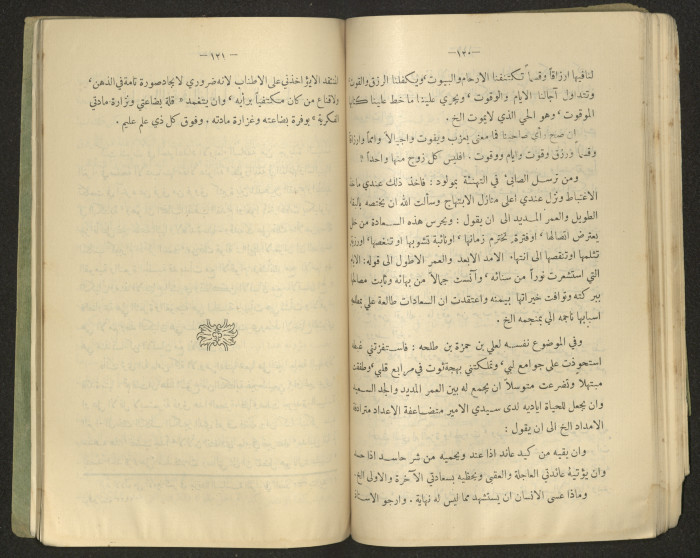 — ١٢٠ —
لناقيها ارزاقاً وقسماً تكتنفنا الارحام والبيوت ، ويتكفلنا الرزق والقوت
وتتداول آجالنا الايام والوقوت ، ويجري علينا ما خط علينا
الموقوت ، وهو الحي الذي لايموت الخ .
ان صح رأي صاحبنا فما معنى يعزب ويفوت واجيالاً وامماً وارزاقاً
وقسماً ورزق وقوت وايام ووقوت . افليس كل زوج منها واحداً ؟
ومن ترسل الصابئ في التهنئة بمولود : فاخذ ذلك عندي مأخذ
الاغتباط ونزل عندي اعلى منازل الابتهاج وسألت الله ان يختصه بالبقاء
الطويل والعمر المديد الى ان يقول : ويحرس هذه السعادة من
يعترض اتصالها ، او فترة تخترم زمانها ، او نائبة تشوبها او تنغصها ، او
تثلمها او تنقصها الى انتهاء الامد الابعد والعمر الاطول الى قوله :
التي استشعرت نوراً من سنائه ، وآنست جمالاً من بهائه
بركته وتوافت خيراتها بيمنه واعتقدت ان السعادات طالعة علي
اسبابها ناجمه الى بمنجمه الخ .
وفي الموضوع نفسه لعلي بن حمزة بن طلحه : فاستفزتني غبطة
استحوذت على جوامع لبي ، وتملكتني بهجة ثوت في مرابع قلبي ، وطفقت
مبتهلا وتضرعت متوسلاً ان يجمع له بين العمر المديد والجد السعيد
وان يجعل للحياة اياديه لدى سيدي الامير متضاعفة الاعداد مترادفة
الامداد الخ الى ان يقول :
وان يقيه من كيد عائد اذا عند ويحميه من شر حاسد اذا حسد
وان يؤتيه عائدتي العاجلة والعقبى ويحظيه بسعادتي الآخرة والاولى الخ .
وماذا عسى الانسان ان يستشهد مما ليس له نهاية . وارجو الاستاذ
— ١٢١ —
المنتقد الايؤاخذني على الاطناب لانه ضروري لايجاد صورة تامة في الذهن ،
ولاقناع من كان مكتفياً برأيه ، وان يتغمد « قلة بضاعتي ونزارة مادتي
الفكرية » بوفرة بضاعته وغزارة مادته . وفوق كل ذي علم عليم .